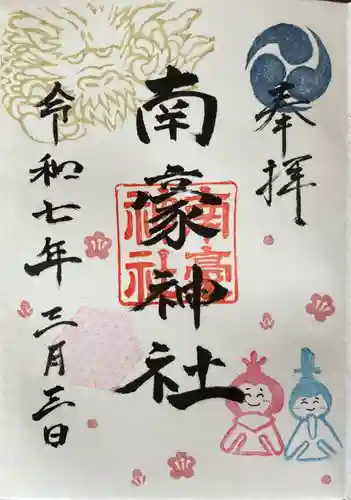 奉拝
南豪神社
南豪神社
令和七年三月三日